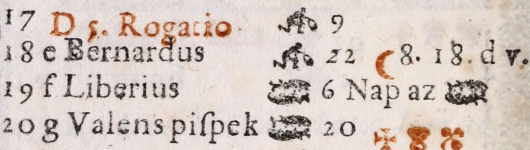 17 D 5. Rogatio 9
18 e Bernardus 22 8. 18. d v.
19 f Liberius 6 Nap az
20 g Valens piſpek 20